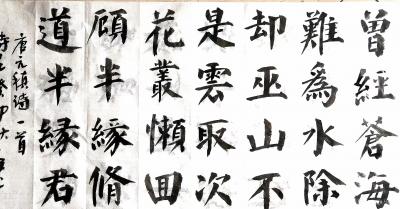 曾經蒼海
難爲水除
却巫山不
是雲取次
花叢懶囬
顧半緣脩
道半緣君
唐元稹詩一首